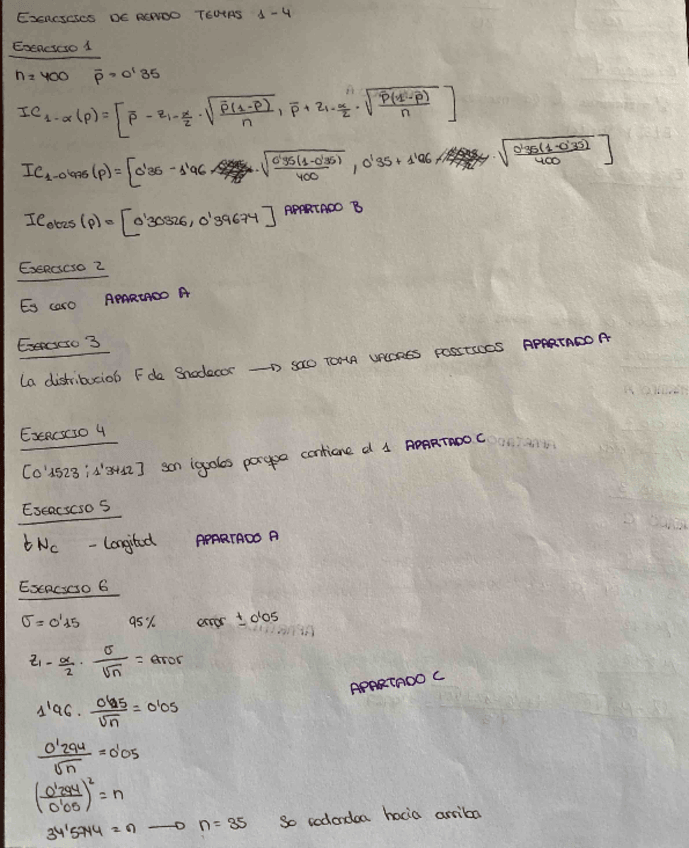 EJERCICIOS DE REPASO TEMAS 1-4
EJERCICIO 1
n = 400 p̄ = 0'35
IC₁₋α(p) = [p̄ - z₁₋α/₂ · √(p̄(1-p̄)/n), p̄ + z₁₋α/₂ · √(p̄(1-p̄)/n)]
IC₁₋₀'₉₇₅(p) = [0'35 - 1'96 · √(0'35(1-0'35)/400), 0'35 + 1'96 · √(0'35(1-0'35)/400)]
IC₀'₀₂₅(p) = [0'30326, 0'39674] APARTADO B
EJERCICIO 2
Es caro APARTADO A
EJERCICIO 3
La distribución F de Snedecor → SOLO TOMA VALORES POSITIVOS APARTADO A
EJERCICIO 4
[0'1523 ; 1'3412] son iguales porque contiene el 1 APARTADO C
EJERCICIO 5
↑ NC - Longitud APARTADO A
EJERCICIO 6
σ = 0'15 95% error ± 0'05
z₁₋α/₂ · σ/√n = error
APARTADO C
1'96 · 0'15/√n = 0'05
0'294/√n = 0'05
(0'294/0'05)² = n
34'5744 = n → n = 35 Se redondea hacia arriba